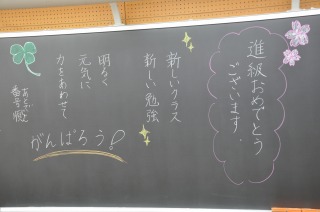 進級おめでとう
ございます。
新しいクラス
新しい勉強
明るく
元気に
力をあわせて
がんばろう!